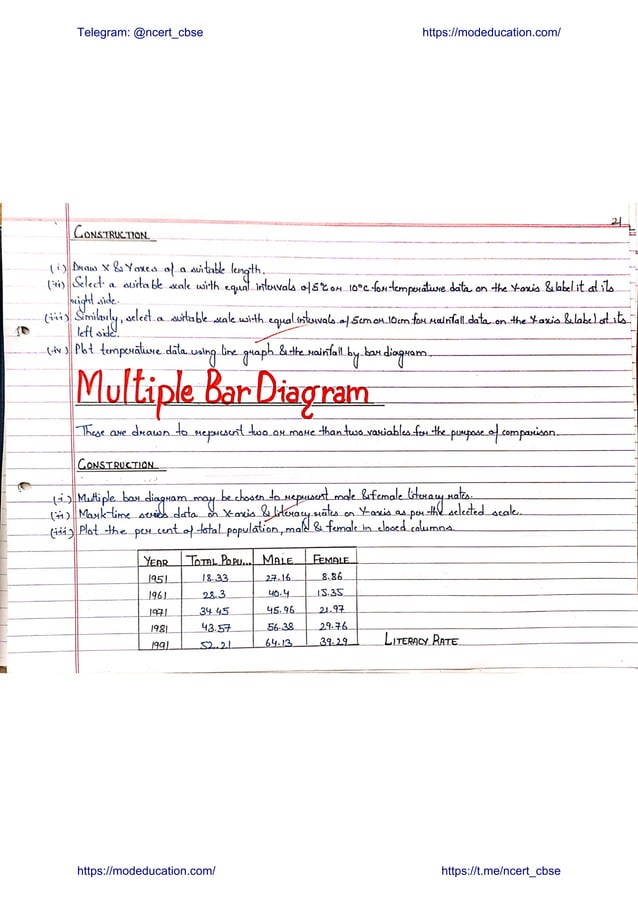 Telegram: @ncert_cbse https://modeducation.com/
21
CONSTRUCTION
(i) Draw X & Y axes of a suitable length.
(ii) Select a suitable scale with equal intervals of 5°C or 10°C for temperature data on the Y-axis & label it at its
right side.
(iii) Similarly, select a suitable scale with equal intervals of 5cm or 10cm for rainfall data on the Y axis & label at its
left side.
(iv) Plot temperature data using line graph & the rainfall by bar diagram.
Multiple Bar Diagram
These are drawn to represent two or more than two variables for the purpose of comparison.
CONSTRUCTION
(i) Multiple bar diagram may be chosen to represent male & female literacy rates.
(ii) Mark time series data on X-axis & literacy rates on Y axis as per the selected scale.
(iii) Plot the per cent of total population, male & female in closed columns.
YEAR TOTAL POPU... MALE FEMALE
1951 18.33 27.16 8.86
1961 28.3 40.4 15.35
1971 34.45 45.96 21.97
1981 43.57 56.38 29.76
1991 52.21 64.13 39.29 LITERACY RATE
https://modeducation.com/ https://t.me/ncert_cbse